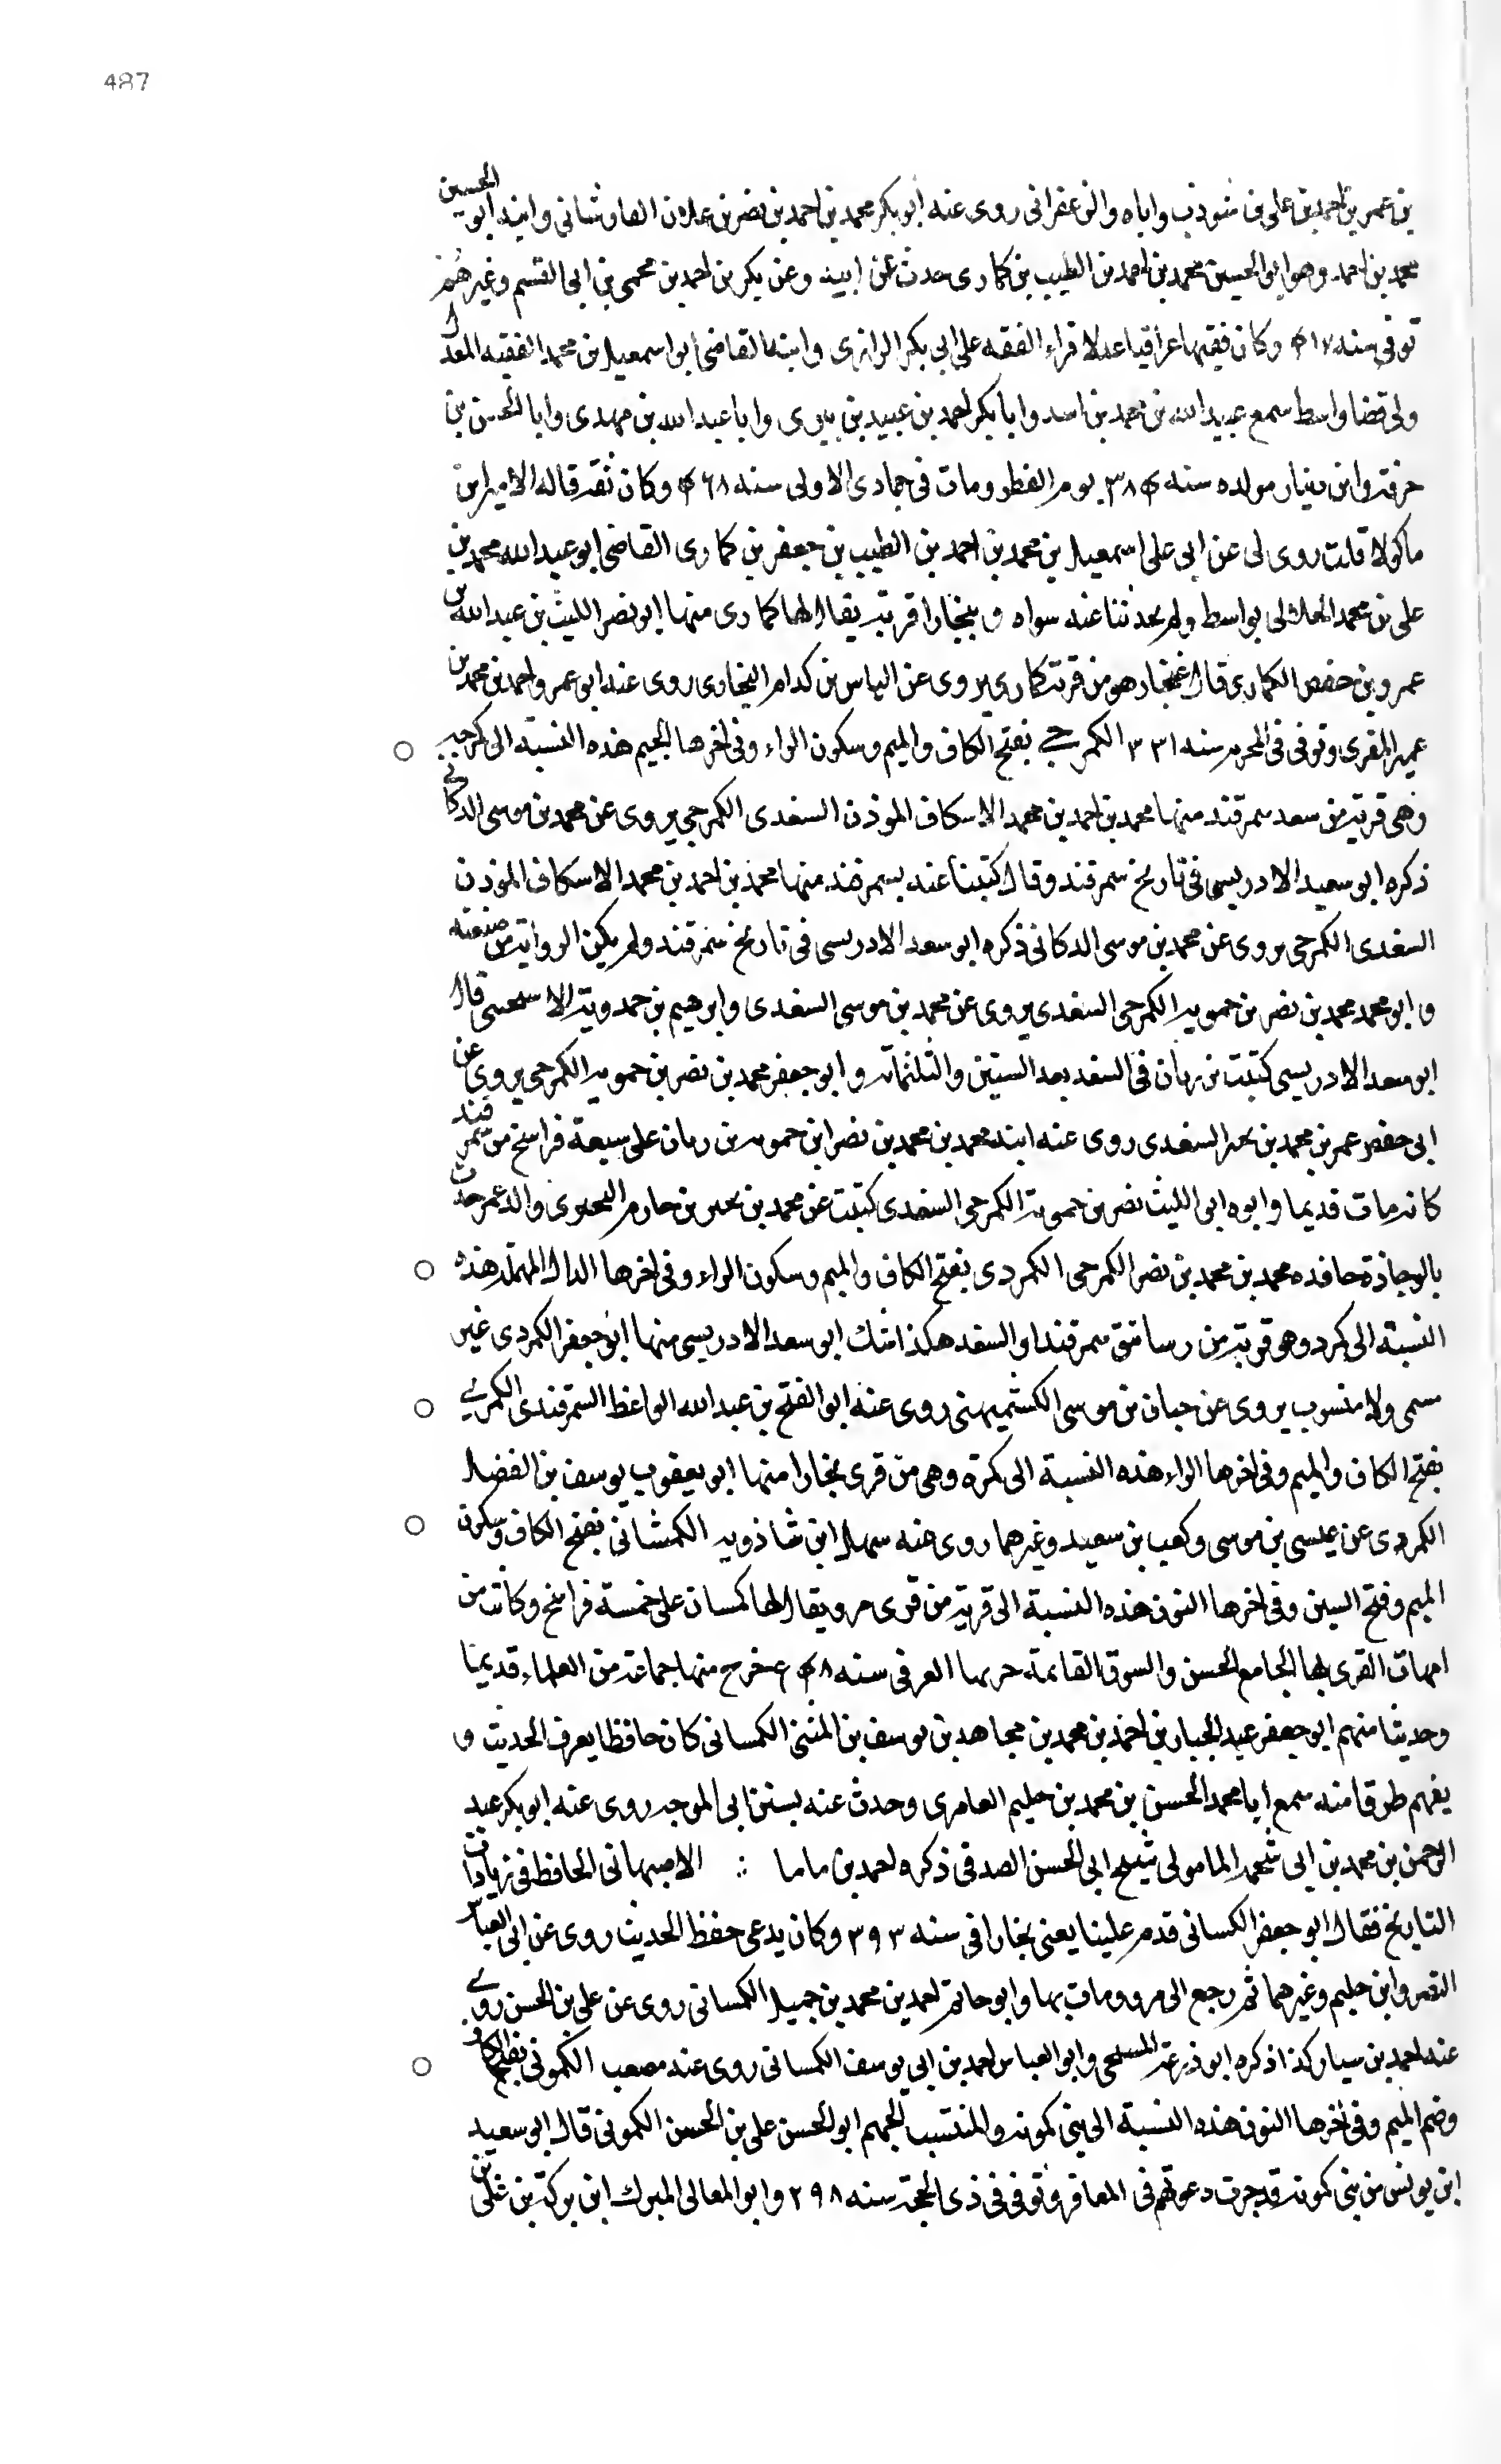 487
بن عمر بن احمد بن علي بن شوذب واباه والزعفراني روى عنه ابو بكر محمد بن احمد بن نصر بن علان الفاوشاني وابنه ابو الحسين
محمد بن احمد وهو ابو الحسين محمد بن احمد بن الطيب بن كماري حدث عن ابيه وعن بكر بن احمد بن محمي بن ابي القسم وغيرهم
توفي سنه ٤١٧ وكان فقيها عراقيا عدلا قراء الفقه على ابي بكر الرازي وابنه القاضي ابوا سمعيل بن محمد الفقيه المعدل
ولي قضا واسط سمع عبيد الله بن محمد بن اسد وابا بكر احمد بن عبيد بن بيري وابا عبد الله بن مهدي وابا الحسن بن
خزفة وابن دينار مولده سنه ٣٨٤ يوم الفطر ومات في جمادى الاولى سنه ٤٦٨ وكان ثقة قاله الامير ابن
ماكولا قلت روى لي عن ابي علي اسمعيل بن محمد بن احمد بن الطيب بن جعفر بن كماري القاضي ابو عبد الله محمد بن
علي بن محمد الجلابي بواسط ولم يحدثنا عنه سواه و ببخارا قرية يقال لها كماري منها ابو نصر الليث بن عبد الله بن
عمرو بن حفص الكماري قال غنجار هو من قرية كماري يروي عن الياس بن كدام البخاري روى عنه ابو عمرو احمد بن محمد بن
عمير المقري وتوفي في المحرم سنه ٣٣١ الكمرجي بفتح الكاف والميم وسكون الراء وفي اخرها الجيم هذه النسبة الى كمرجه
وهي قرية من سغد سمرقند منها محمد بن احمد بن محمد الاسكاف الموذن السغدي الكمرجي يروي عن محمد بن موسى الدكاني
ذكره ابو سعيد الادريسي في تاريخ سمرقند وقال كتبنا عنه بسمرقند منها محمد بن احمد بن محمد الاسكاف الموذن
السغدي الكمرجي يروي عن محمد بن موسى الدكاني ذكره ابو سعد الادريسي في تاريخ سمرقند ولم يكن الرواية من صنعته
وابو محمد محمد بن نصر بن حمويه الكمرجي السغدي يروي عن محمد بن موسى السغدي وابرهيم بن حمدويه قال
ابو سعد الادريسي كتبت بن ريان في السغد بعد الستين والثلثمائة وابو جعفر محمد بن نصر بن حمويه الكمرجي يروي عن
ابي حفص عمر بن محمد بن بحر السغدي روى عنه ابنه محمد بن محمد بن نصر ابن حمويه بن ريان على سبعة فراسخ من سمرقند
كانه مات قديما وابوه ابي الليث نصر بن حمويه الكمرجي السغدي كتبت عن محمد بن بحير بن حازم البحيري والد عمر حدث
بالوجاذة حافده محمد بن محمد بن نصر الكمرجي الكمردي بفتح الكاف والميم وسكون الراء وفي اخرها الدال المهملة هذه
النسبة الى كمرد وهو قرية من رساتيق سمرقند او السغد هكذا شك ابو سعد الادريسي منها ابو جعفر الكمردي غير
مسمى ولا منسوب يروي عن حبان بن موسى الكشميهني روى عنه ابو الفتح بن عبد الله الواعظ السمرقندي الكمري
بفتح الكاف والميم وفي اخرها الراء هذه النسبة الى كمرة وهي من قرى بخارا منها ابو يعقوب يوسف بن الفضل
الكمردي عن عيسى بن موسى وكعب بن سعيد وغيرهما روى عنه سهل ابن شاذويه الكمشاني بفتح الكاف وسكون
الميم وفتح السين وفي اخرها النون هذه النسبة الى قرية من قرى مرو يقال لها كمسان على خمسة فراسخ وكانت من
امهات القرى بها الجامع الحسن والسوق القايمة خربها الغز في سنه ٥٤٨ خرج منها جماعة من العلماء قديما
وحديثا منهم ابو جعفر عبد الجبار بن احمد بن محمد بن مجاهد بن يوسف بن المثنى الكمساني كان حافظا يعرف الحديث و
يفهم طرقا منه سمع ابا محمد الحسن بن محمد بن حليم العامري وحدث عنه بسنن ابي الموجه روى عنه ابو بكر عبد
الرحمن بن محمد بن ابي شحمه المامولي شيخ ابي الحسن الصدفي ذكره احمد بن ماما : الاصبهاني الحافظ في زيادات
التاريخ فقال ابو جعفر الكمساني قدم علينا يعني بخارا في سنه ٣٩٣ وكان يدعي حفظ الحديث روى عن ابي العباس
النضر وابن حليم وغيرهما ثم رجع الى مرو ومات بها وابو حاتم احمد بن محمد بن جميل الكمساني روى عن علي بن الحسن روى
عنه احمد بن سيار كذا ذكره ابو زرعة السنجي وابو العباس احمد بن ابي يوسف الكمساني روى عنه مصعب الكموني بفتح الكاف
وضم الميم وفي اخرها النون هذه النسبة الى بني كمونه والمنتسب اليهم ابو الحسن علي بن الحسن الكموني قال ابو سعيد
ابن يونس من بني كمونه قد جرت دعوتهم في المعافر وتوفي في ذي الحجة سنه ٢٩٨ وابو المعالي المبرك ابن بركة بن علي بن